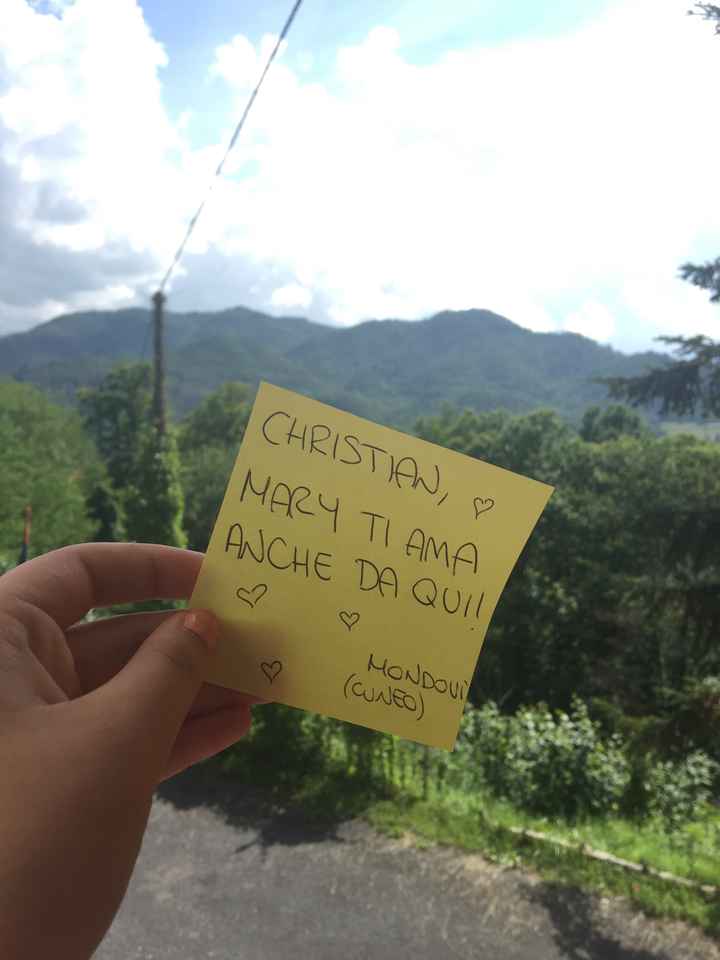 CHRISTIAN, ♡
MARY TI AMA
ANCHE DA QUI!
MONDOVI'
(CUNEO)